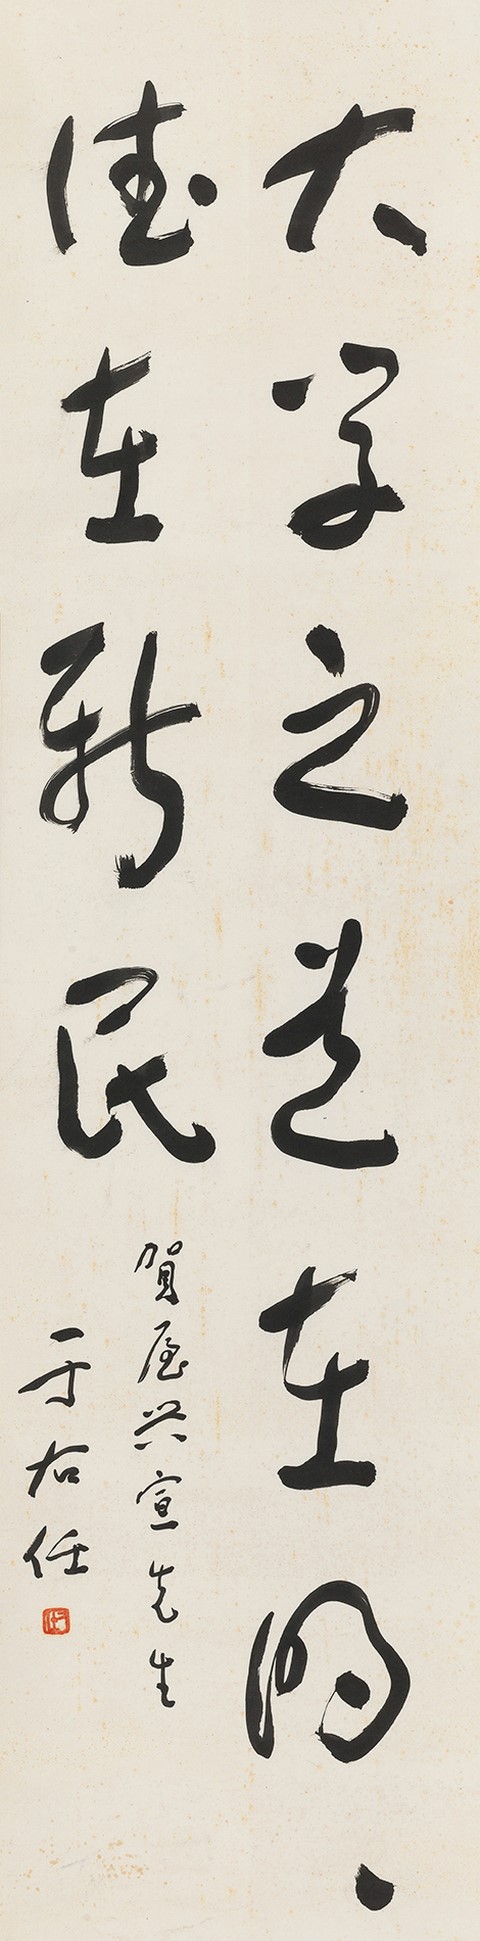 大學之道在明、
德在新民
賀屋興宣先生
于右任